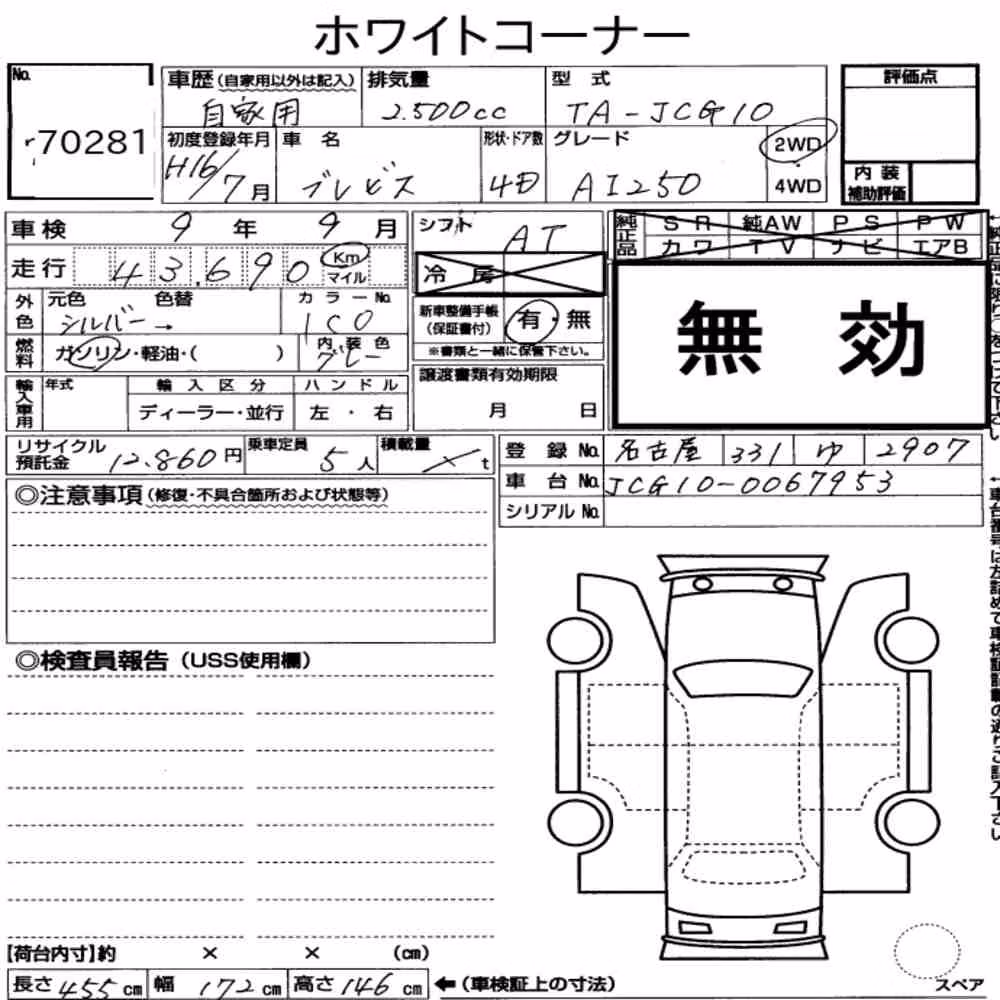 ホワイトコーナー
No. 70281
車歴(自家用以外は記入) 自家用
排気量 2.500cc
型式 TA-JCG10
評価点
初度登録年月 H16/7月
車名 ブレビス
形状・ドア数 4D
グレード AI250
2WD
4WD
内装
補助評価
車検 9年 9月
走行 43,690 Km マイル
シフト AT
純正品 SR 純AW PS PW
カワ TV ナビ エアB
冷房
無効
外色 元色 シルバー→ 色替
カラーNo. 1C0
新車整備手帳
(保証書付) 有・無
※書類と一緒に保管下さい。
燃料 ガソリン・軽油・( )
内装色 グレー
輸入車用 年式
輸入区分 ディーラー・並行
ハンドル 左・右
譲渡書類有効期限
月 日
リサイクル
預託金 12.860円
乗車定員 5人
積載量 t
登録No. 名古屋 331 ゆ 2907
車台No. JCG10-0067953
シリアルNo.
◎注意事項(修復・不具合箇所および状態等)
◎検査員報告(USS使用欄)
【荷台内寸】約 × × (cm)
長さ455cm 幅172cm 高さ146cm ←(車検証上の寸法)
スペア